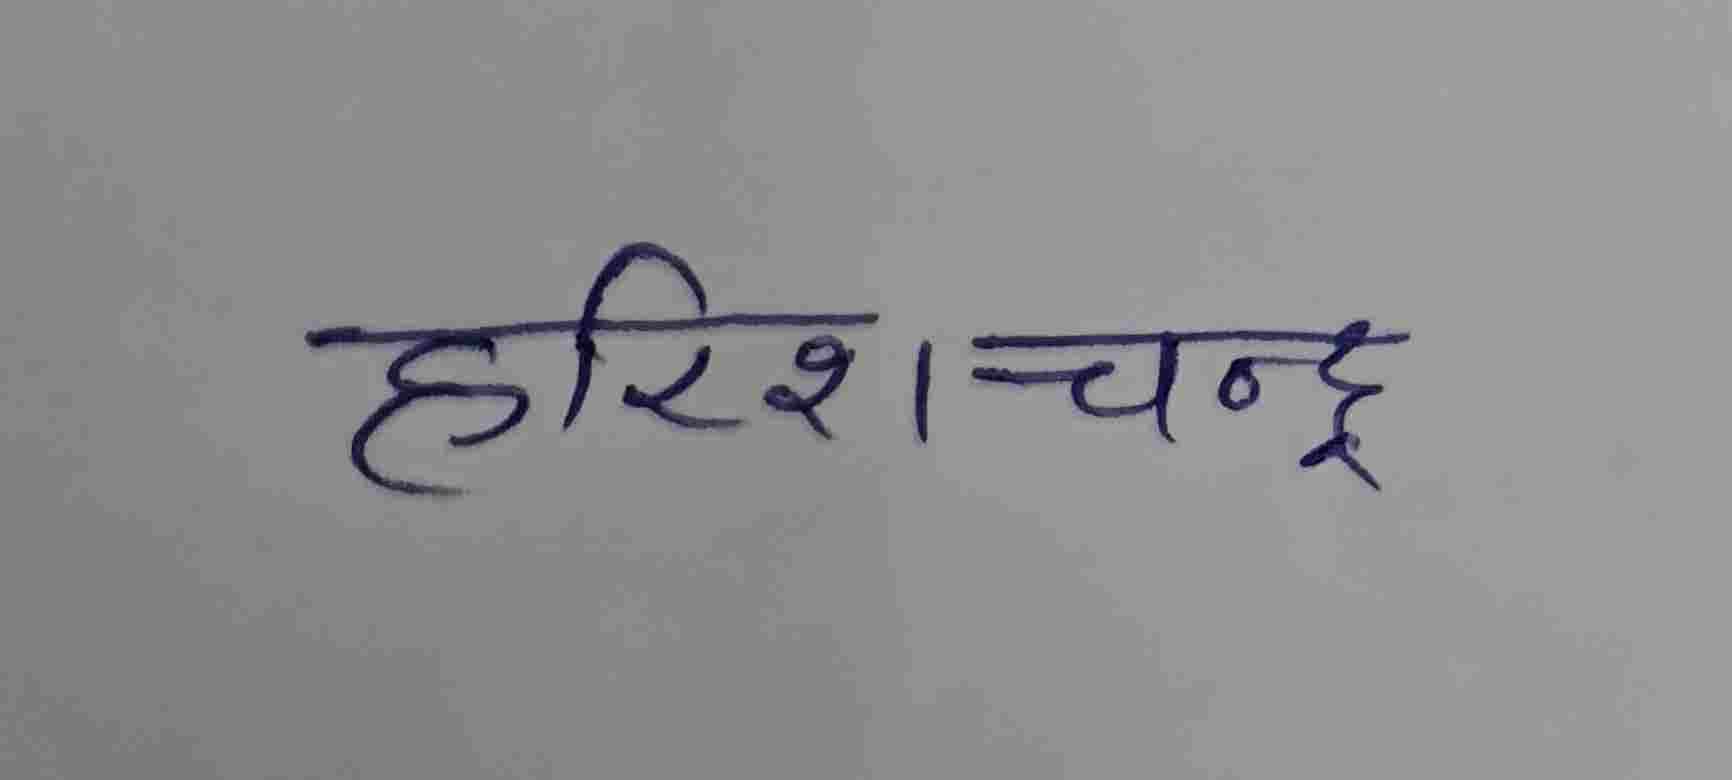 हरिश चन्द्र